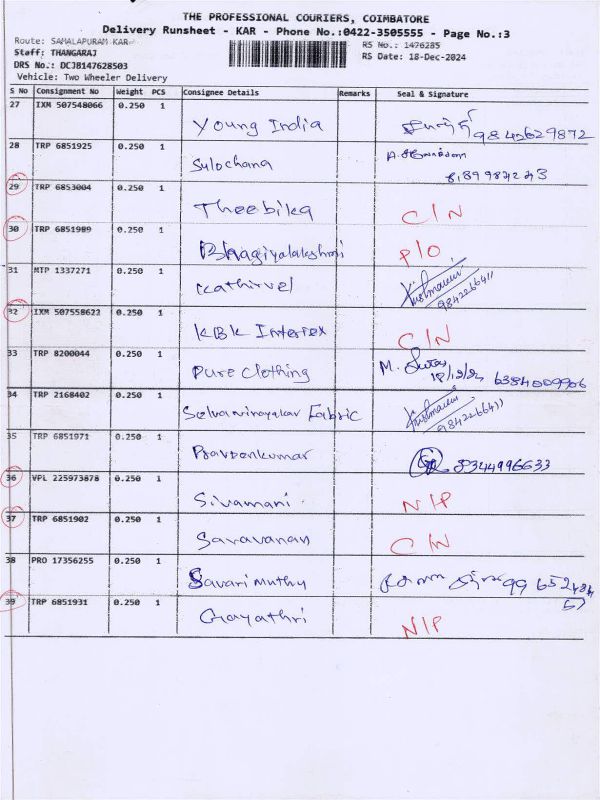 THE PROFESSIONAL COURIERS, COIMBATORE
Delivery Runsheet - KAR - Phone No.:0422-3505555 - Page No.:3
Route: SAMALAPURAM KAR
RS No.: 1476285
Staff: THANGARAJ
RS Date: 18-Dec-2024
DRS No.: DCJB147628503
Vehicle: Two Wheeler Delivery
S No Consignment No Weight PCS Consignee Details Remarks Seal & Signature
27 IXM 507548066 0.250 1
Young India 9842629872
28 TRP 6851925 0.250 1
Sulochana
29 TRP 6853004 0.250 1
Theebika C/N
30 TRP 6851989 0.250 1
Bhagiyalakshmi P/O
31 MTP 1337271 0.250 1
Kathirvel 9842266411
32 IXM 507558622 0.250 1
KBK Intertex C/N
33 TRP 8200044 0.250 1
Pure Clothing M. 18/12/24 6384009906
34 TRP 2168402 0.250 1
Selvavinayakar Fabric 9842266411
35 TRP 6851971 0.250 1
Praveenkumar 8344996633
36 VPL 225973878 0.250 1
Sivamani N/P
37 TRP 6851902 0.250 1
Saravanan C/N
38 PRO 17356255 0.250 1
Savarimuthu 99652484
57
39 TRP 6851931 0.250 1
Gayathri N/P